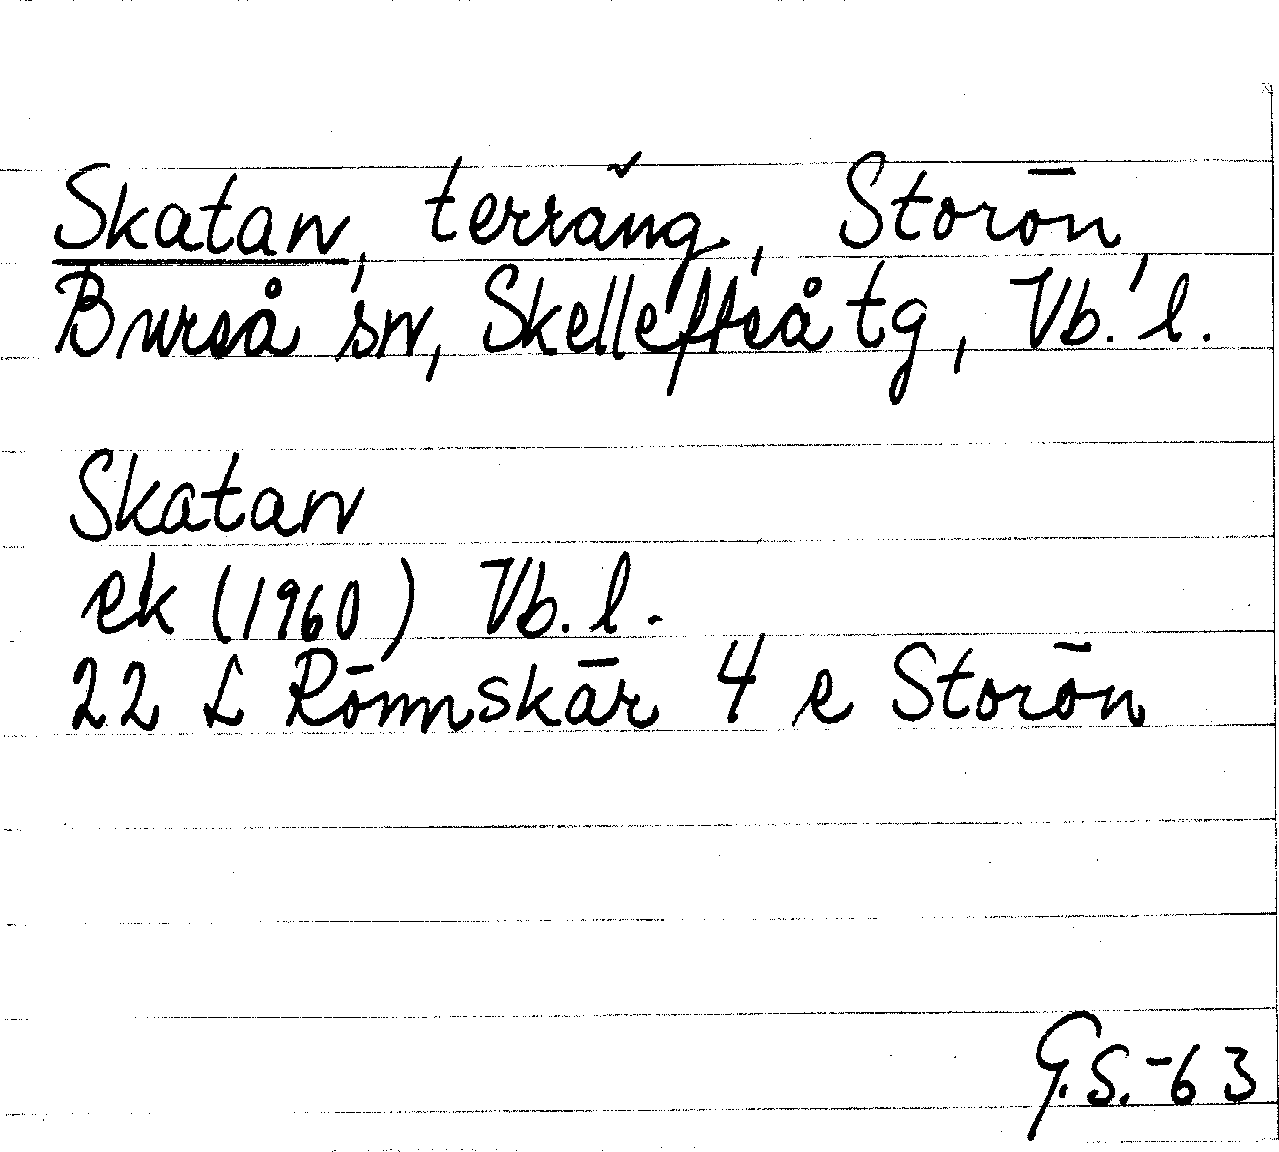 Skatan, terräng, Storön,
Bureå sn, Skellefteå tg, Vb. l.
Skatan
ek (1960) Vb. l.
22 L Rönnskär 4 e Storön
G.S.-63